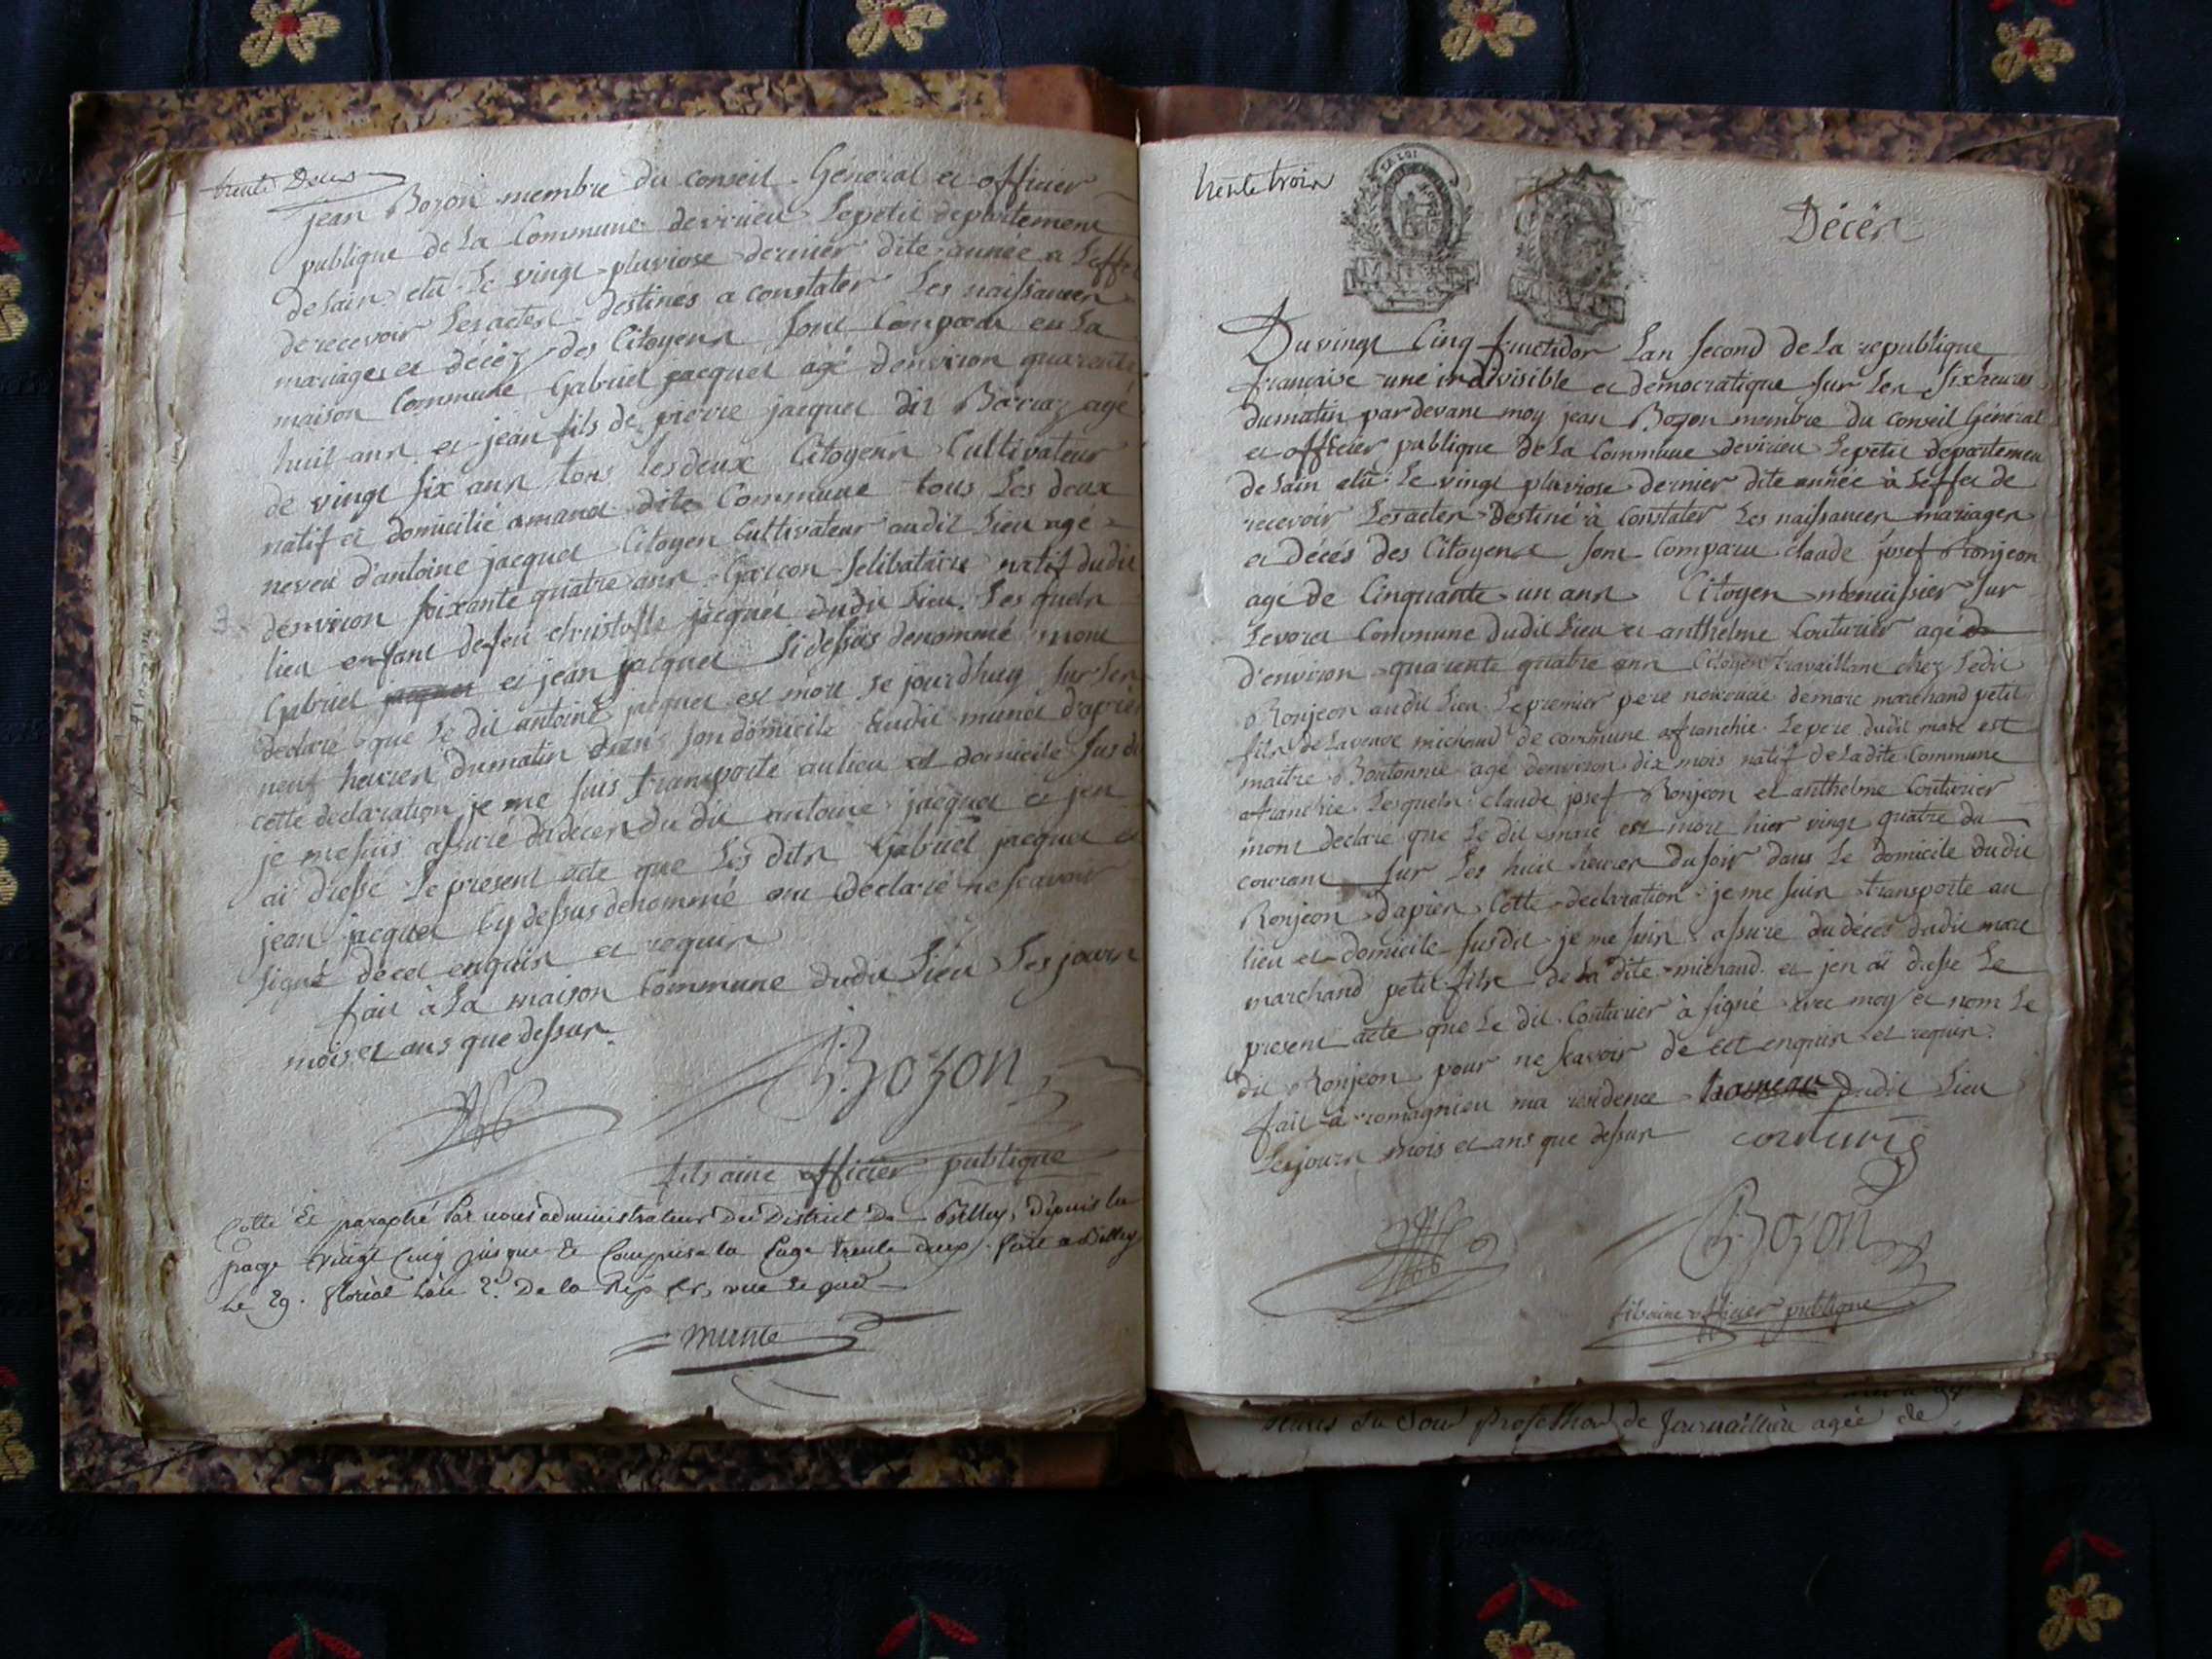 trente Deux
jean Bozon membre du conseil Général et officier
publique de La Commune de virieu Le petit departement
de Lain elû Le vingt pluviose dernier dite année a Leffet
de recevoir Les actes destinés a constater Les naissances
mariages et décéz des Citoyens sont Comparu en La
maison Commune Gabriel jacquet agé denviron quarente
huit ans et jean fils de pierre jacquet dit Barraz agé
de vingt six ans tous les deux Citoyens Cultivateur
natif et domicilié a munet dite Commune tous Les deux
neveu d'antoine jacquet Citoyen Cultivateur audit Lieu agé
denviron soixante quatre ans Garcon selibataire natif dudit
lieu enfant de feu christofle jacquet dudit Lieu. Les quels
Gabriel jacquet et jean jacquet si dessus denommé mont
declaré que Le dit antoine jacquet est mort se jourdhuy sur Les
neuf heures du matin dans son domicile audit munet d'apres
cette declaration je me suis transporté au lieu et domicile sus dit
je me suis assuré du décès du dit antoine jacquet et jen
ai dressé Le present acte que Les dits Gabriel jacquet et
jean jacquet cy dessus denommé ont declaré ne scavoir
signé de cet enquis et requis
fait à La maison Commune dudit Lieu Les jours
mois et ans que dessus
Bozon
fils ainé officier publique
Cotté Et paraphé Par nous administrateur Du District De Belley, depuis la
page vingt cinq jusque Et Comprise la Page trente deux. fait a Belley
Le 29. floréal L'an 2.e De la Rép. fr.
trente trois
LA LOI
Décès
Du vingt Cinq fructidor Lan second de La republique
francaise une indivisible et democratique sur Les six heures
du matin par devant moy jean Bozon membre du conseil Général
et officier publique de La Commune de virieu Le petit departement
de Lain elû Le vingt pluviose dernier dite année à Leffet de
recevoir Les actes Destiné à Constater Les naissances mariages
et Décés des Citoyens sont Comparu claude josef Ronjeon
agé de Cinquante un ans Citoyen menuissier sur
Levoret Commune dudit Lieu et anthelme Couturier agé de
d'environ quarente quatre ans Citoyen travaillant chez Ledit
Ronjeon audit Lieu Le premier pere nourricié de marc marchand petit
fils de La veuve michaud de commune affranchie. Le pere dudit marc est
maitre Boutonnié agé denviron dix mois natif de La dite Commune
affranchie. Lesquels claude josef Ronjeon et anthelme Couturier
mont declaré que Le dit marc est mort hier vingt quatre du
courant sur Les huit heures du soir dans Le domicile dudit
Ronjeon d'apres Cette declaration je me suis transporté au
lieu et domicile susdit je me suis assuré du décés dudit marc
marchand petit fils de La dite michaud et jen ai dressé Le
present acte que Le dit Couturier à signé avec moy et nom Le
dit Ronjeon pour ne scavoir de cet enquis et requis.
fait a romagnieu ma residence dudit Lieu
Les jours mois et ans que dessus
couturié
Bozon
fils ainé officier publique
de Journalliere agée de